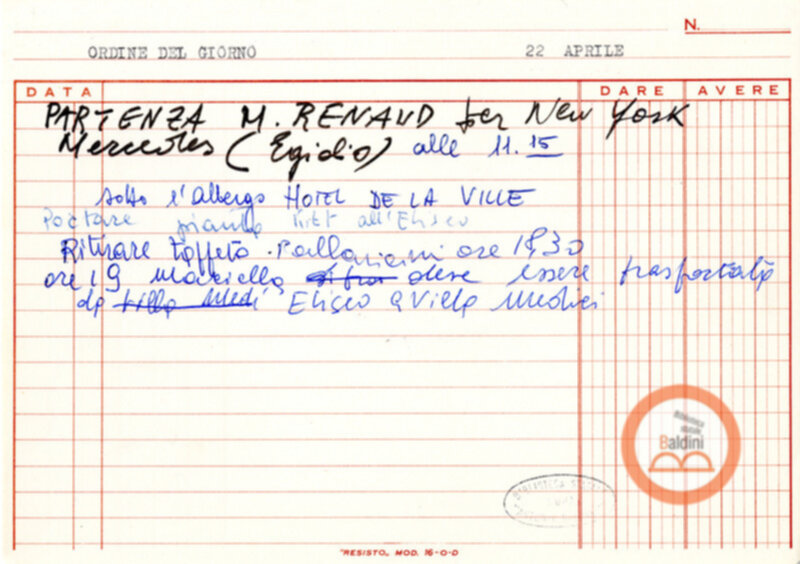 N.
ORDINE DEL GIORNO 22 APRILE
DATA DARE AVERE
PARTENZA M. RENAUD per New York
Mercedes (Egidio) alle 11.15
sotto l'albergo HOTEL DE LA VILLE
Portare pianta all'Eliseo
Ritirare tappeto Pallavicini ore 1930
ore 19 Mariella deve essere trasportata
da Villa Medi Eliseo a Villa Medici
Biblioteca
Baldini
BIBLIOTECA
"RESISTO" MOD. 16-O-D